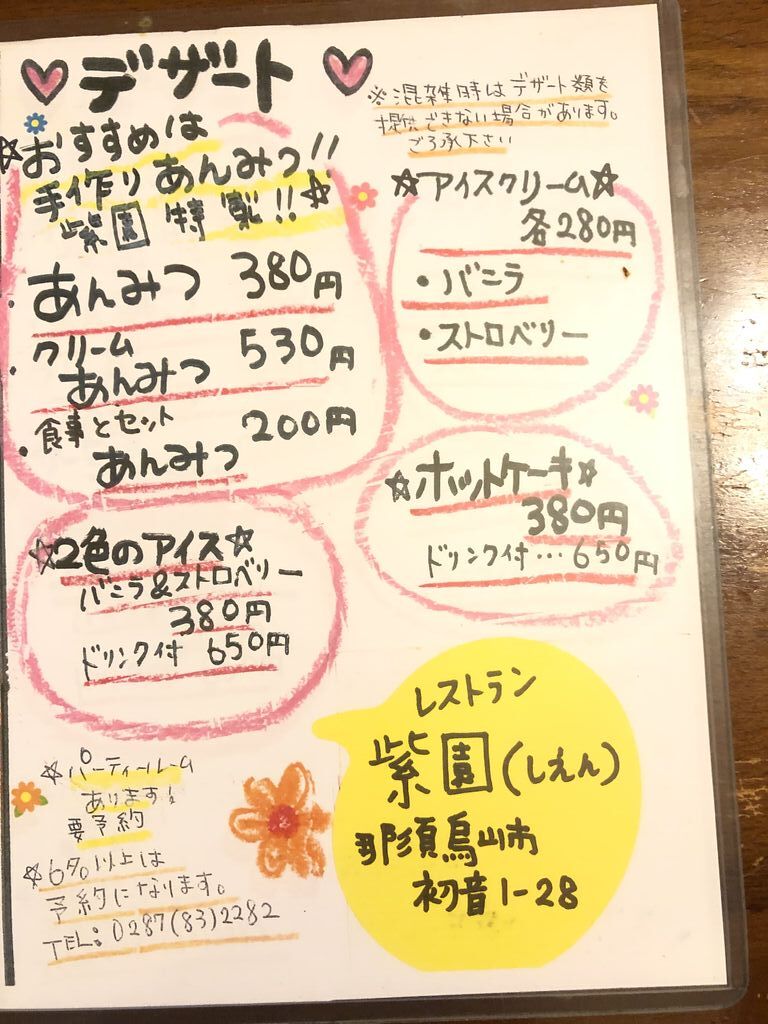 デザート
※混雑時はデザート類を
提供できない場合があります。
ご了承下さい
☆おすすめは
手作りあんみつ!!
紫園特製!!☆
・あんみつ 380円
・クリーム
あんみつ 530円
・食事とセット
あんみつ 200円
☆アイスクリーム☆
各280円
・バニラ
・ストロベリー
☆ホットケーキ☆
380円
ドリンク付…650円
☆2色のアイス☆
バニラ&ストロベリー
380円
ドリンク付 650円
レストラン
紫園(しえん)
那須烏山市
初音1-28
☆パーティールーム
あります!
要予約
☆6名以上は
予約になります。
TEL:0287(83)2282